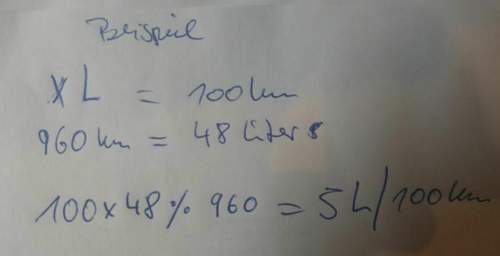 Beispiel
X L = 100 km
960 km = 48 liters
100 x 48 % 960 = 5 L/100 km